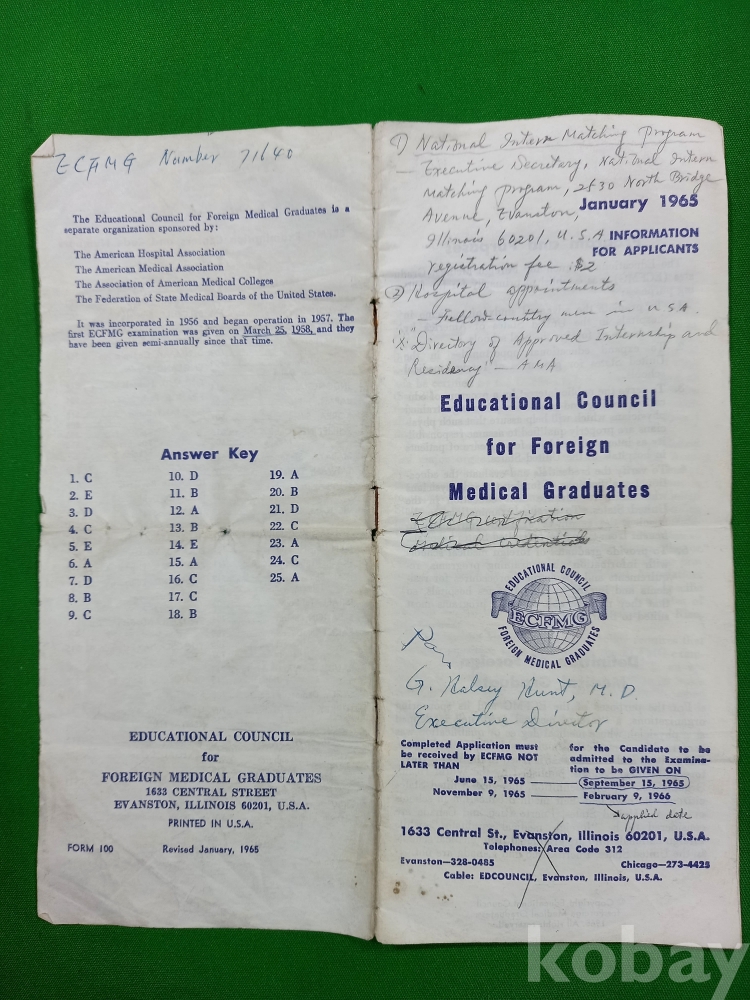 ECFMG Number 71640
The Educational Council for Foreign Medical Graduates is a
separate organization sponsored by:
The American Hospital Association
The American Medical Association
The Association of American Medical Colleges
The Federation of State Medical Boards of the United States.
It was incorporated in 1956 and began operation in 1957. The
first ECFMG examination was given on March 25, 1958, and they
have been given semi-annually since that time.
Answer Key
1. C
2. E
3. D
4. C
5. E
6. A
7. D
8. B
9. C
10. D
11. B
12. A
13. B
14. E
15. A
16. C
17. C
18. B
19. A
20. B
21. D
22. C
23. A
24. C
25. A
EDUCATIONAL COUNCIL
for
FOREIGN MEDICAL GRADUATES
1633 CENTRAL STREET
EVANSTON, ILLINOIS 60201, U.S.A.
PRINTED IN U.S.A.
FORM 100 Revised January, 1965
1) National Intern Matching Program
— Executive Secretary, National Intern
Matching program, 2530 North Bridge
Avenue, Evanston,
Illinois 60201, U.S.A
registration fee $2
January 1965
INFORMATION
FOR APPLICANTS
2) Hospital appointments
— Fellow-country men in U.S.A.
"Directory of Approved Internship and
Residency" — AMA
Educational Council
for Foreign
Medical Graduates
ECFMG certification
EDUCATIONAL COUNCIL
ECFMG
FOREIGN MEDICAL GRADUATES
G. Halsey Hunt, M.D.
Executive Director
Completed Application must
be received by ECFMG NOT
LATER THAN
for the Candidate to be
admitted to the Examina-
tion to be GIVEN ON
June 15, 1965 September 15, 1965
November 9, 1965 February 9, 1966
applied date
1633 Central St., Evanston, Illinois 60201, U.S.A.
Telephones: Area Code 312
Evanston—328-0485 Chicago—273-4425
Cable: EDCOUNCIL, Evanston, Illinois, U.S.A.
kobay